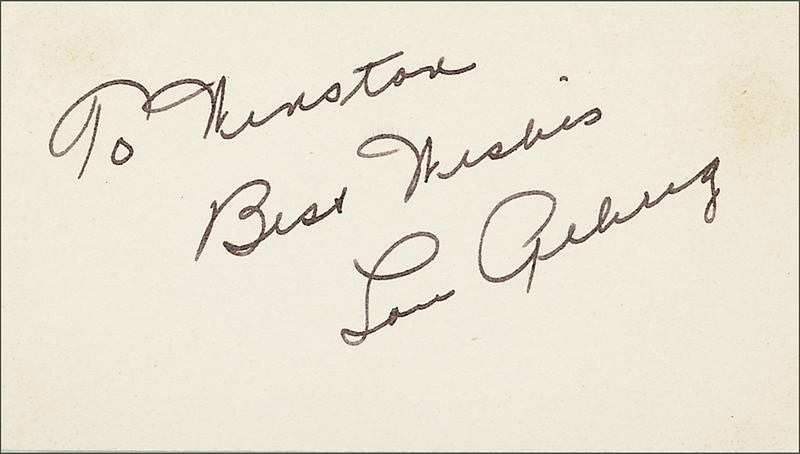 To Winston
Best Wishis
Lou Gehrig